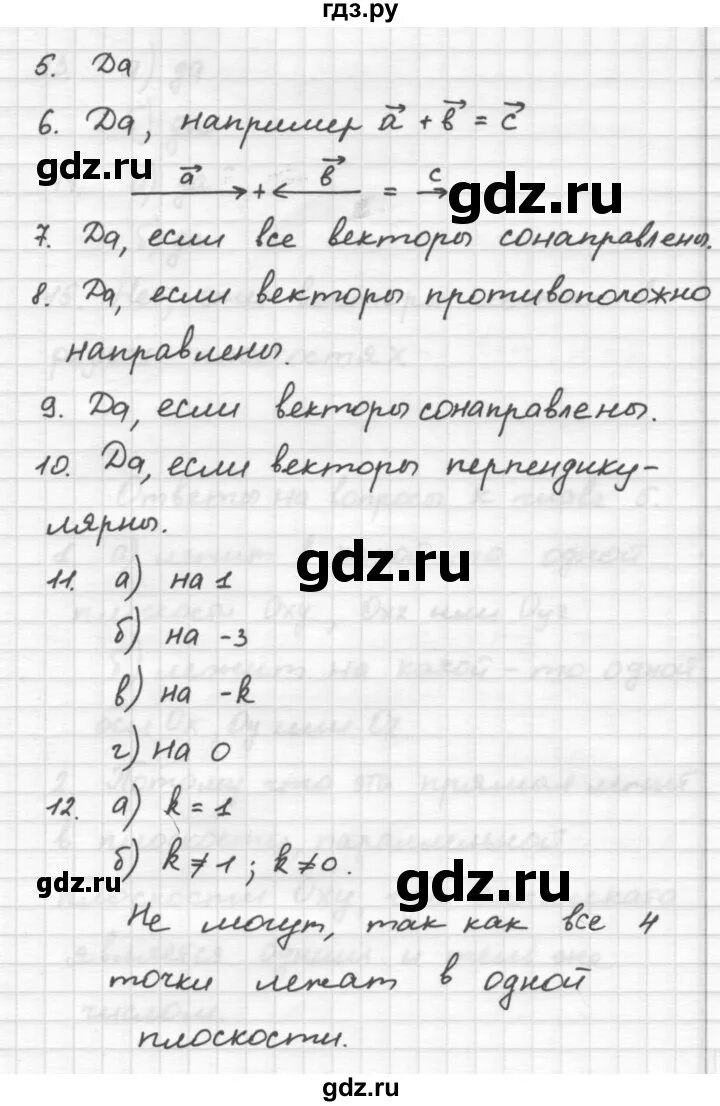 гдз.ру
5. Да
6. Да, например a⃗ + b⃗ = c⃗
gdz.ru a⃗ + b⃗ = c
gdz.ru
7. Да, если все векторы сонаправлены.
8. Да, если векторы противоположно
направлены.
9. Да, если векторы сонаправлены.
10. Да, если векторы перпендику-
лярны.
gdz.ru
11. а) на 1
б) на -3
в) на -k
г) на 0
12. а) k = 1
б) k ≠ 1 ; k ≠ 0.
gdz.ru
gdz.ru
Не могут, так как все 4
точки лежат в одной
плоскости.
gdz.ru